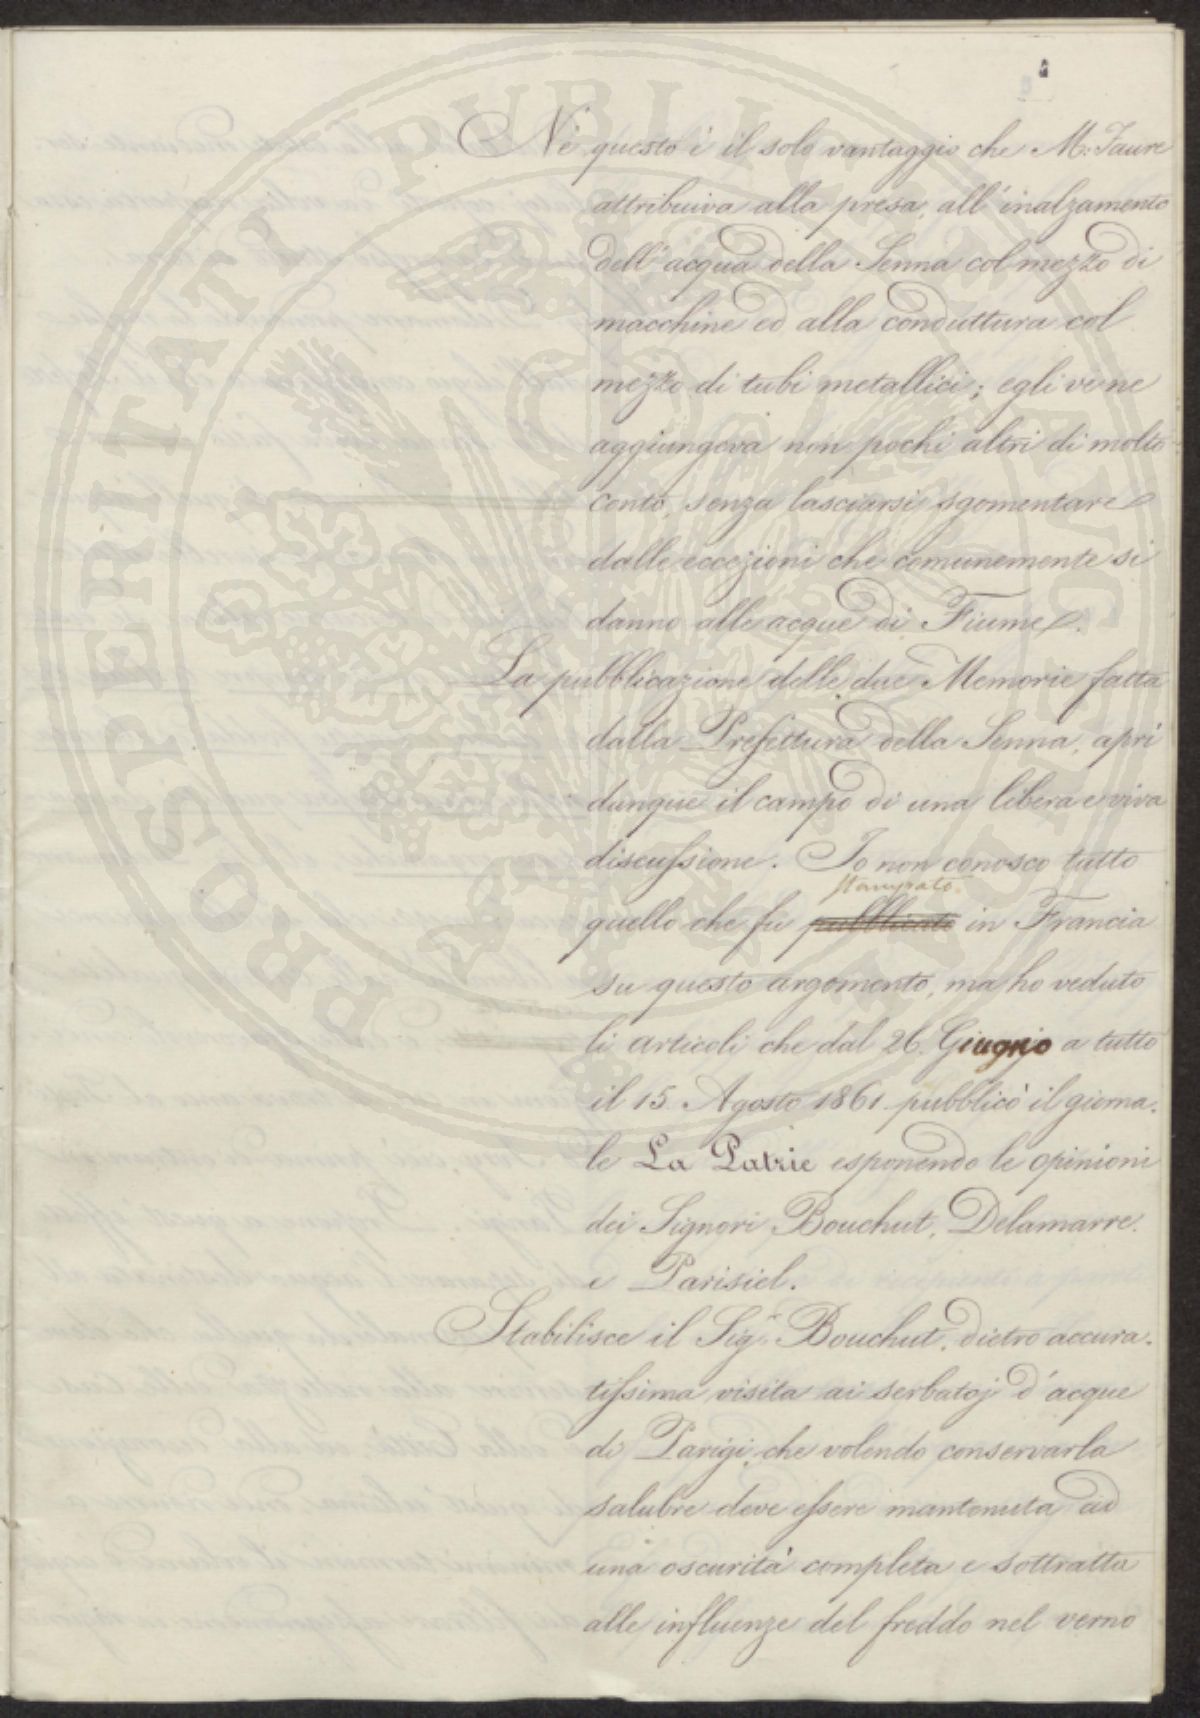 Nè questo è il solo vantaggio che M.r Faure
attribuiva alla presa, all'inalzamento
dell'acqua della Senna col mezzo di
macchine ed alla conduttura col
mezzo di tubi metallici; egli ve ne
aggiungeva non pochi altri di molto
conto, senza lasciarsi sgomentare
dalle eccezioni che comunemente si
danno alle acque di Fiume.
La pubblicazione delle due Memorie fatta
dalla Prefettura della Senna, aprì
dunque il campo di una libera e viva
discussione. Io non conosco tutto
stampato
quello che fu pubblicato in Francia
su questo argomento, ma ho veduto
li articoli che dal 26. Giugno a tutto
il 15 Agosto 1861 pubblicò il giorna-
le La Patrie esponendo le opinioni
dei Signori Bouchut, Delamarre.
e Parisiel.
Stabilisce il Sig.r Bouchut, dietro accura-
tissima visita ai serbatoj d'acque
di Parigi, che volendo conservarla
salubre deve essere mantenuta ad
una oscurità completa e sottratta
alle influenze del freddo nel verno
PROSPERITATI PUBLICAE